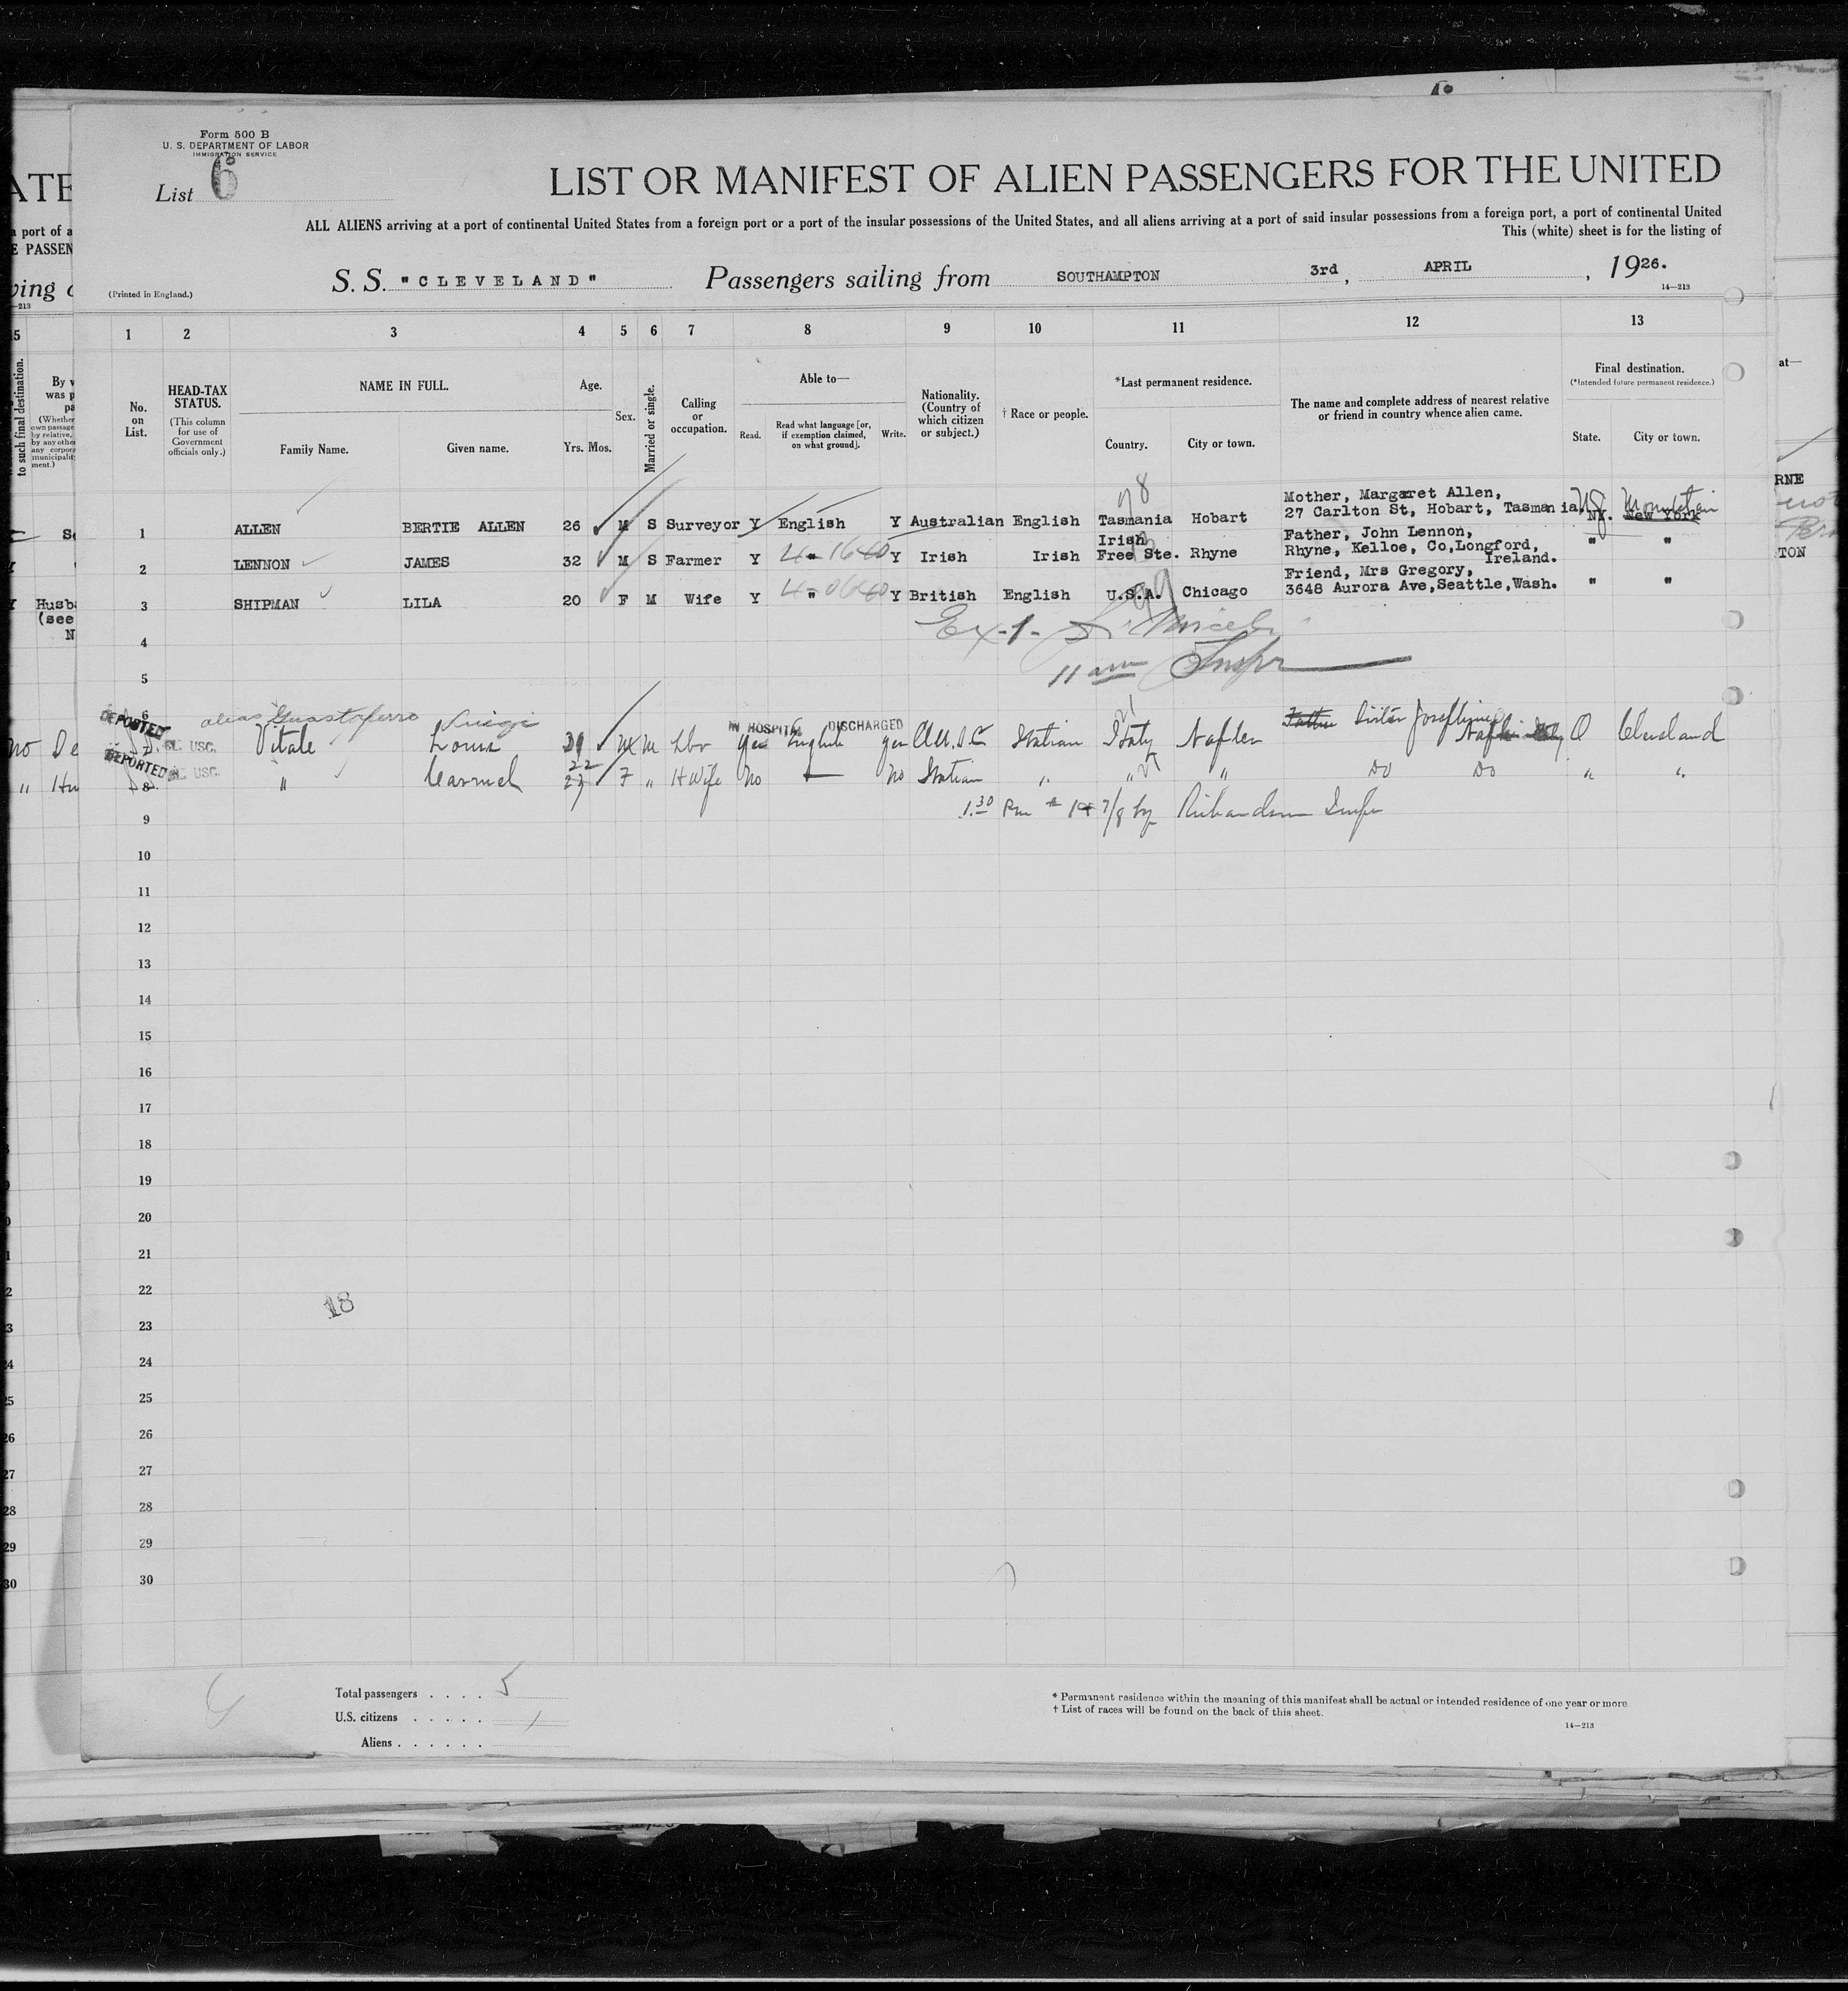 Form 500 B
U. S. DEPARTMENT OF LABOR
IMMIGRATION SERVICE
List 6
LIST OR MANIFEST OF ALIEN PASSENGERS FOR THE UNITED
ALL ALIENS arriving at a port of continental United States from a foreign port or a port of the insular possessions of the United States, and all aliens arriving at a port of said insular possessions from a foreign port, a port of continental United
This (white) sheet is for the listing of
S. S. "CLEVELAND" Passengers sailing from SOUTHAMPTON 3rd, APRIL, 1926.
(Printed in England.)
14—213
1 2 3 4 5 6 7 8 9 10 11 12 13
No. on List.
HEAD-TAX STATUS.
(This column for use of Government officials only.)
NAME IN FULL.
Family Name. Given name.
Age.
Yrs. Mos.
Sex.
Married or single.
Calling or occupation.
Able to—
Read. Read what language [or, if exemption claimed, on what ground]. Write.
Nationality. (Country of which citizen or subject.)
† Race or people.
*Last permanent residence.
Country. City or town.
The name and complete address of nearest relative or friend in country whence alien came.
Final destination.
(*Intended future permanent residence.)
State. City or town.
98
Mother, Margaret Allen,
1 ALLEN BERTIE ALLEN 26 M S Surveyor Y English Y Australian English Tasmania Hobart 27 Carlton St, Hobart, Tasmania NY. New York
NJ
Irish Father, John Lennon,
2 LENNON JAMES 32 M S Farmer Y " Y Irish Irish Free Ste. Rhyne Rhyne, Kelloe, Co,Longford, " "
Ireland.
Friend, Mrs Gregory,
3 SHIPMAN LILA 20 F M Wife Y " Y British English U.S.A. Chicago 3648 Aurora Ave,Seattle,Wash. " "
99
4 Ex-1-
5 11 am Inspr
6 DEPORTED alias Guastaferro Luigi IN HOSPITAL DISCHARGED
7 USC. Vitale Louis M M Lbr Yes English yes U.S.C Italian Italy Naples Father Sister Josephine O Cleveland
8 DEPORTED USC. " Carmel 22 F " H Wife No — No Italian " " " Do Do " "
9 1.30 Pm 7/8 by Richardson Inspr
10
11
12
13
14
15
16
17
18
19
20
21
22
18
23
24
25
26
27
28
29
30
Total passengers . . . . 5
U.S. citizens . . . . . 1
Aliens . . . . . .
* Permanent residence within the meaning of this manifest shall be actual or intended residence of one year or more
† List of races will be found on the back of this sheet.
14—213